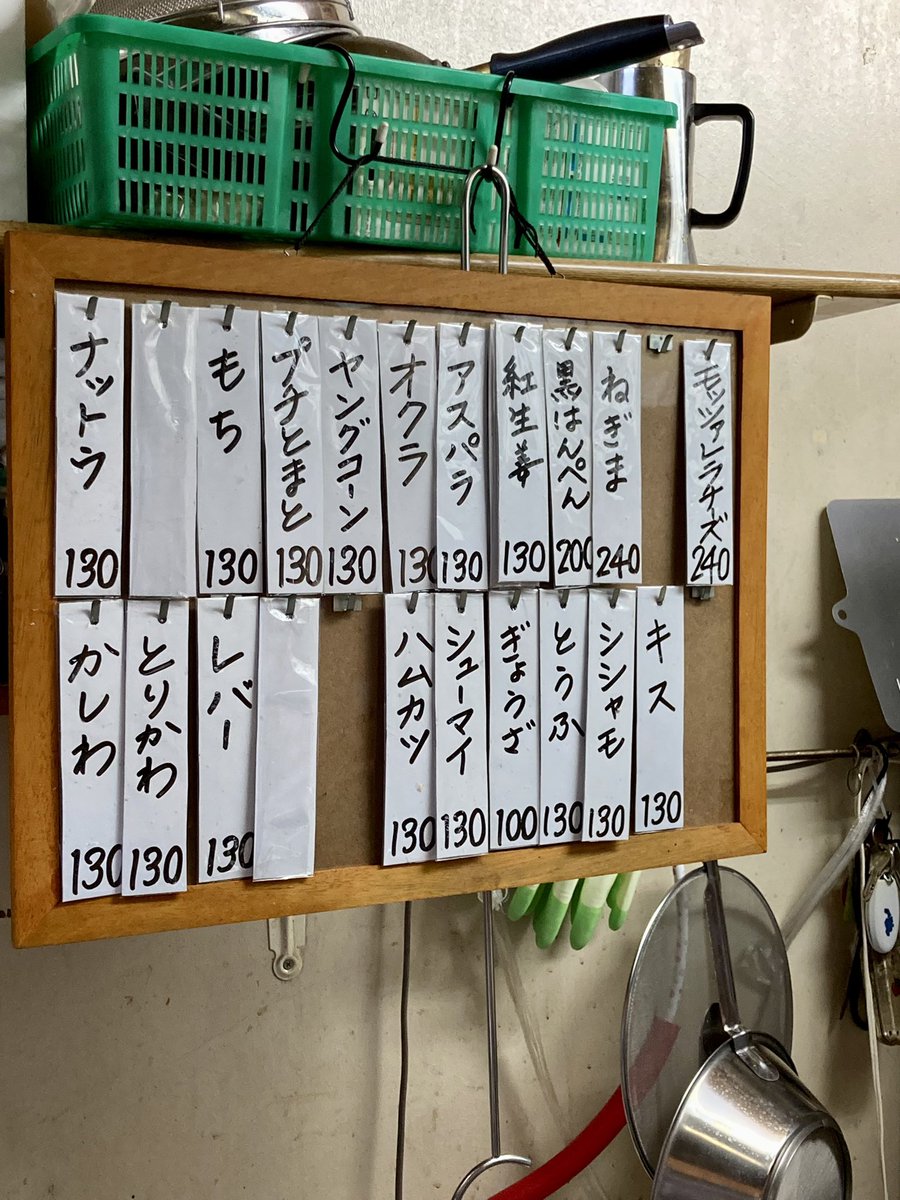 モッツァレラチーズ 240
ねぎま 240
黒はんぺん 200
紅生姜 130
アスパラ 130
オクラ 130
ヤングコーン 130
プチとまと 130
もち 130
ナットウ 130
キス 130
シシャモ 130
とうふ 130
ぎょうざ 100
シューマイ 130
ハムカツ 130
レバー 130
とりかわ 130
かしわ 130